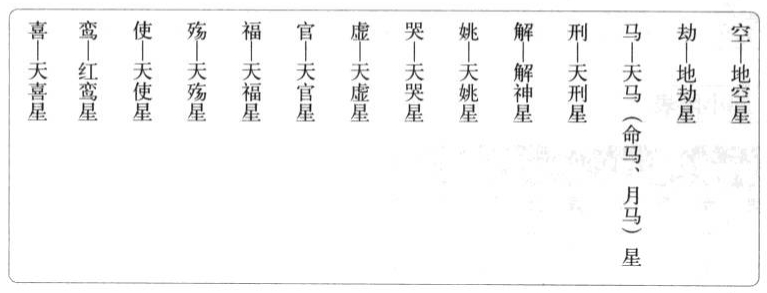 空—地空星
劫—地劫星
马—天马（命马、月马）星
刑—天刑星
解—解神星
姚—天姚星
哭—天哭星
虚—天虚星
官—天官星
福—天福星
殇—天殇星
使—天使星
鸾—红鸾星
喜—天喜星